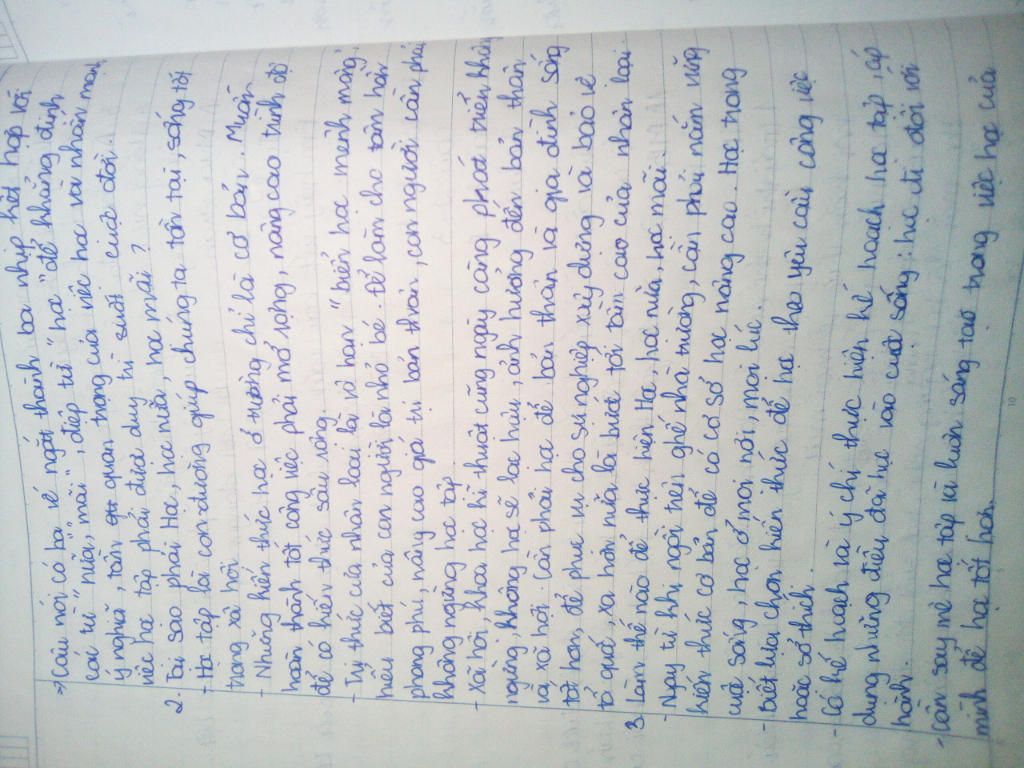 => Câu nói có ba vế ngắt thành ba nhịp kết hợp với
các từ "nữa", mãi", điệp từ "học" để khẳng định
ý nghĩa, tầm quan trọng của việc học và nhấn mạng
việc học tập phải được duy trì suốt cuộc đời.
2. Tại sao phải Học, học nữa, học mãi?
- Học tập là con đường giúp chúng ta tồn tại, sống tốt
trong xã hội
- Những kiến thức học ở trường chỉ là cơ bản. Muốn
hoàn thành tốt công việc phải mở rộng, nâng cao trình độ
để có kiến thức sâu rộng.
- Trị thức của nhân loại là vô hạn "biển học mênh mông,
hiểu biết của con người là nhỏ bé. Để làm cho tâm hồn
phong phú, nâng cao giá trị bản thân, con người cần phải
không ngừng học tập
- Xã hội, khoa học kĩ thuật cũng ngày càng phát triển không
ngừng, không học sẽ lạc hậu, ảnh hưởng đến bản thân
và xã hội. Cần phải học để bản thân và gia đình sống
tốt hơn, để phục vụ cho sự nghiệp xây dựng và bảo vệ
tổ quốc, xa hơn nữa là bước tới tầm cao của nhân loại.
3. Làm thế nào để thực hiện Học, học nữa, học mãi.
- Ngay từ khi ngồi trên ghế nhà trường, cần phải nắm vững
kiến thức cơ bản để có cơ sở học nâng cao. Học trong
cuộc sống, học ở mọi nơi, mọi lúc.
- Biết lựa chọn kiến thức để học theo yêu cầu công việc
hoặc sở thích.
- Có kế hoạch và ý chí thực hiện kế hoạch học tập áp
dụng những điều đã học vào cuộc sống: học đi đôi với
hành.
- Cần say mê học tập và luôn sáng tạo trong việc học của
mình để học tốt hơn.